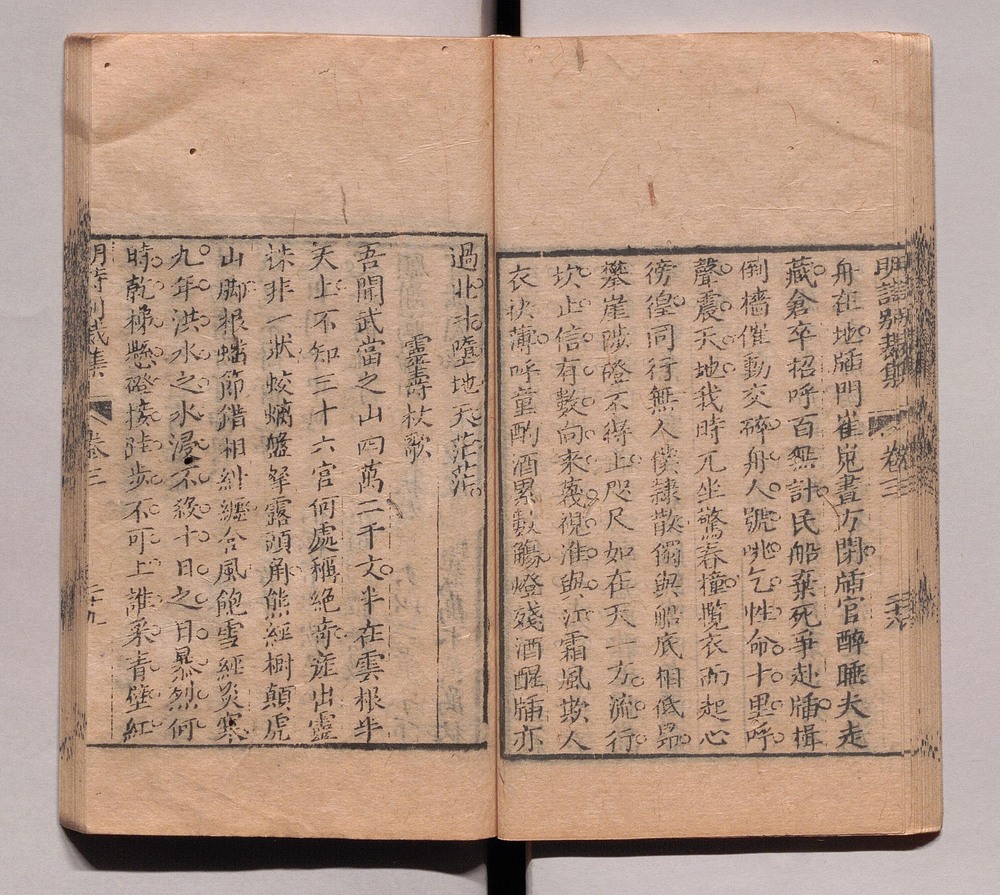 明詩別裁集 卷三 二十八
舟在地牐門崔嵬晝方閉牐官醉睡夫走
藏倉卒招呼百無計民船棄死爭赴牐楫
倒檣催動交碎舟人號咷乞性命十里呼
聲震天地我時兀坐驚舂撞攬衣而起心
徬徨同行無人僕隸散獨與船底相低昻
攀崖陟磴不得上咫尺如在天一方流行
坎止信有數向來蔑視淮與江霜風欺人
衣袂薄呼童酌酒累數觴燈殘酒醒牐亦
過北斗墮地天茫茫
靈壽杖歌
吾聞武當之山四萬二千丈半在雲根半
天上不知三十六宫何處稱絕奇產出靈
株非一狀蛟螭盤拏露頭角熊經樹顛虎
山脚根蟠節錯相糾纏含風飽雪經炎寒
九年洪水之水浸不後十日之日暴烈何
時乾梯懸磴接陡步不可上誰采青壁紅
明詩別裁集 卷三 二十九